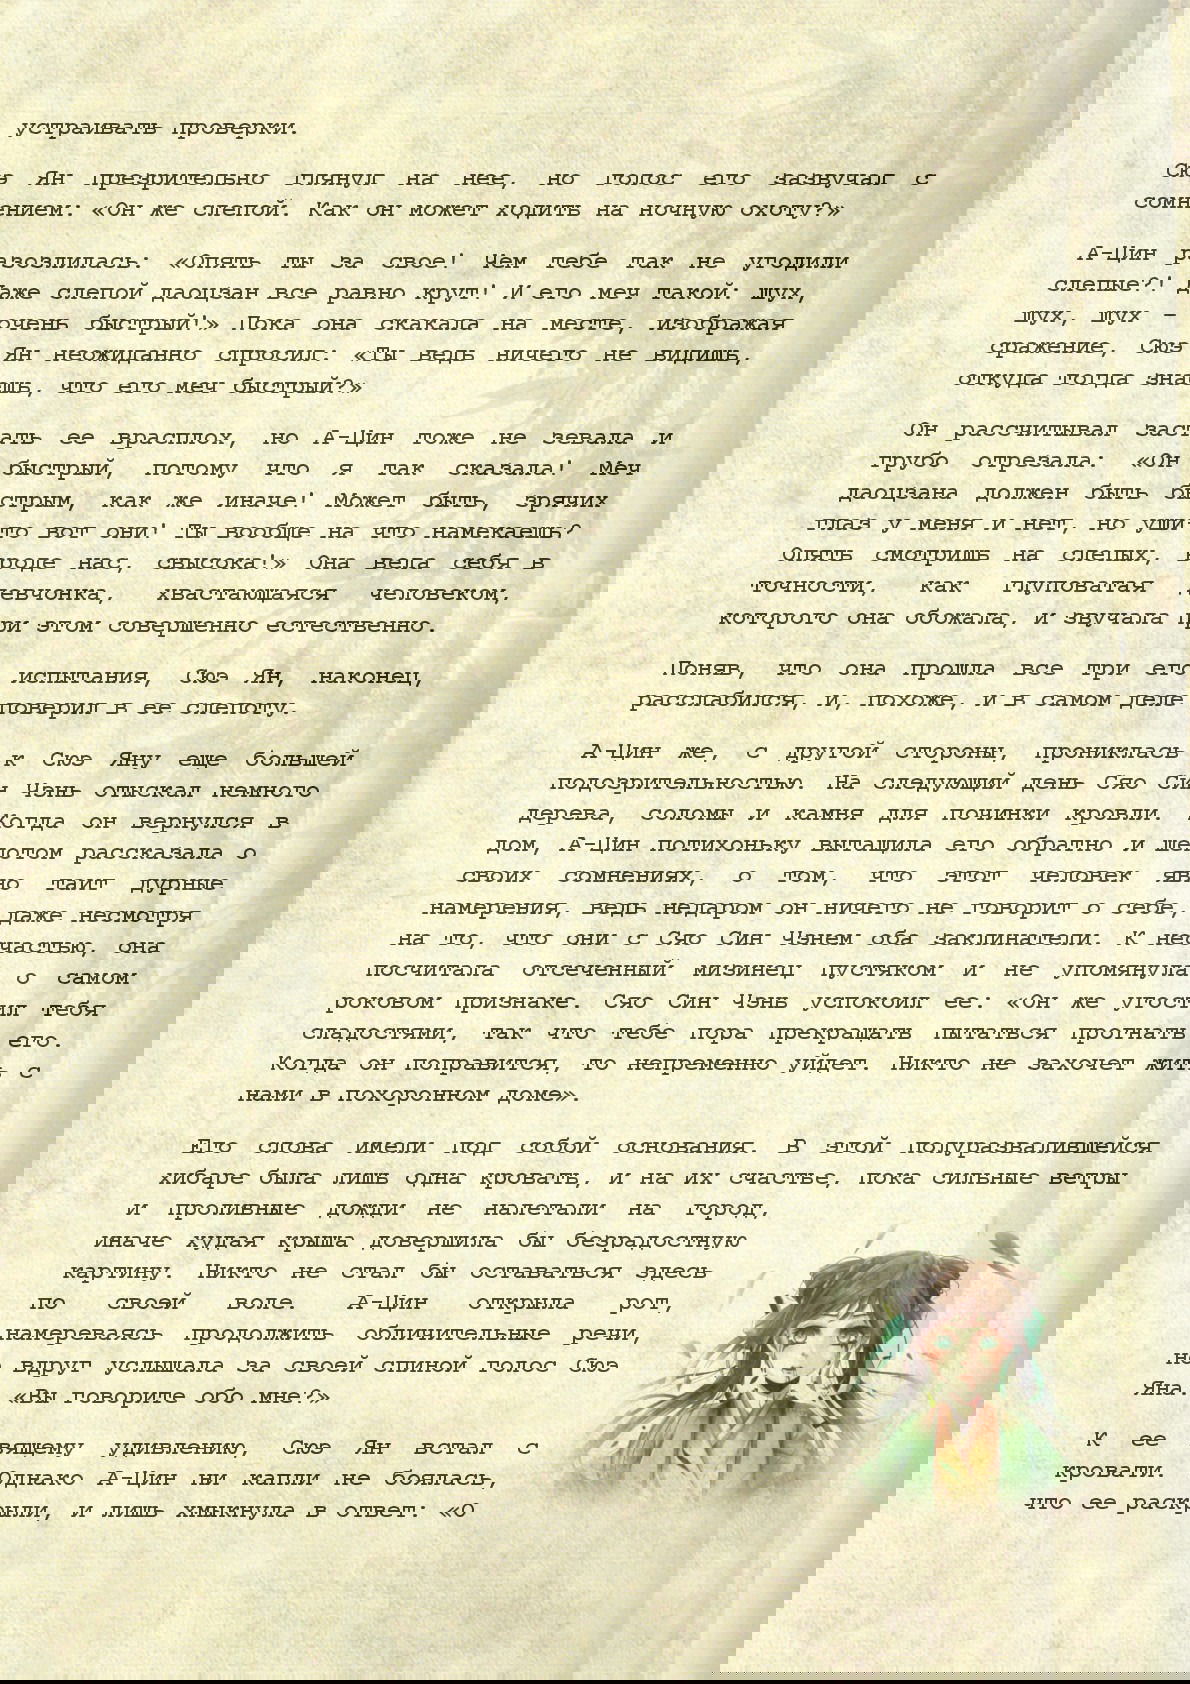 устраивать проверки.
Сюэ Ян презрительно глянул на нее, но голос его зазвучал с
сомнением: «Он же слепой. Как он может ходить на ночную охоту?»
А-Цин разозлилась: «Опять ты за свое! Чем тебе так не угодили
слепые?! Даже слепой даоцзан все равно крут! И его меч такой: шух,
шух, шух – очень быстрый!» Пока она скакала на месте, изображая
сражение, Сюэ Ян неожиданно спросил: «Ты ведь ничего не видишь,
откуда тогда знаешь, что его меч быстрый?»
Он рассчитывал застать ее врасплох, но А-Цин тоже не зевала и
грубо отрезала: «Он быстрый, потому что я так сказала! Меч
даоцзана должен быть быстрым, как же иначе! Может быть, зрячих
глаз у меня и нет, но уши-то вот они! Ты вообще на что намекаешь?
Опять смотришь на слепых, вроде нас, свысока!» Она вела себя в
точности, как глуповатая девчонка, хвастающаяся человеком,
которого она обожала, и звучала при этом совершенно естественно.
Поняв, что она прошла все три его испытания, Сюэ Ян, наконец,
расслабился, и, похоже, и в самом деле поверил в ее слепоту.
А-Цин же, с другой стороны, прониклась к Сюэ Яну еще большей
подозрительностью. На следующий день Сяо Син Чэнь отыскал немного
дерева, соломы и камня для починки кровли. Когда он вернулся в
дом, А-Цин потихоньку вытащила его обратно и шепотом рассказала о
своих сомнениях, о том, что этот человек явно таит дурные
намерения, ведь недаром он ничего не говорит о себе, даже несмотря
на то, что они с Сяо Син Чэнем оба заклинатели. К несчастью, она
посчитала отсеченный мизинец пустяком и не упомянула о самом
роковом признаке. Сяо Син Чэнь успокоил ее: «Он же угостил тебя
сладостями, так что тебе пора прекращать пытаться прогнать его.
Когда он поправится, то непременно уйдет. Никто не захочет жить с
нами в похоронном доме».
Его слова имели под собой основания. В этой полуразвалившейся
хибаре была лишь одна кровать, и на их счастье, пока сильные ветры
и проливные дожди не налетали на город,
иначе худая крыша довершила бы безрадостную
картину. Никто не стал бы оставаться здесь
по своей воле. А-Цин открыла рот,
намереваясь продолжить обличительные речи,
но вдруг услышала за своей спиной голос Сюэ
Яна: «Вы говорите обо мне?»
К ее вящему удивлению, Сюэ Ян встал с
кровати. Однако А-Цин ни капли не боялась,
что ее раскрыли, и лишь хмыкнула в ответ: «О